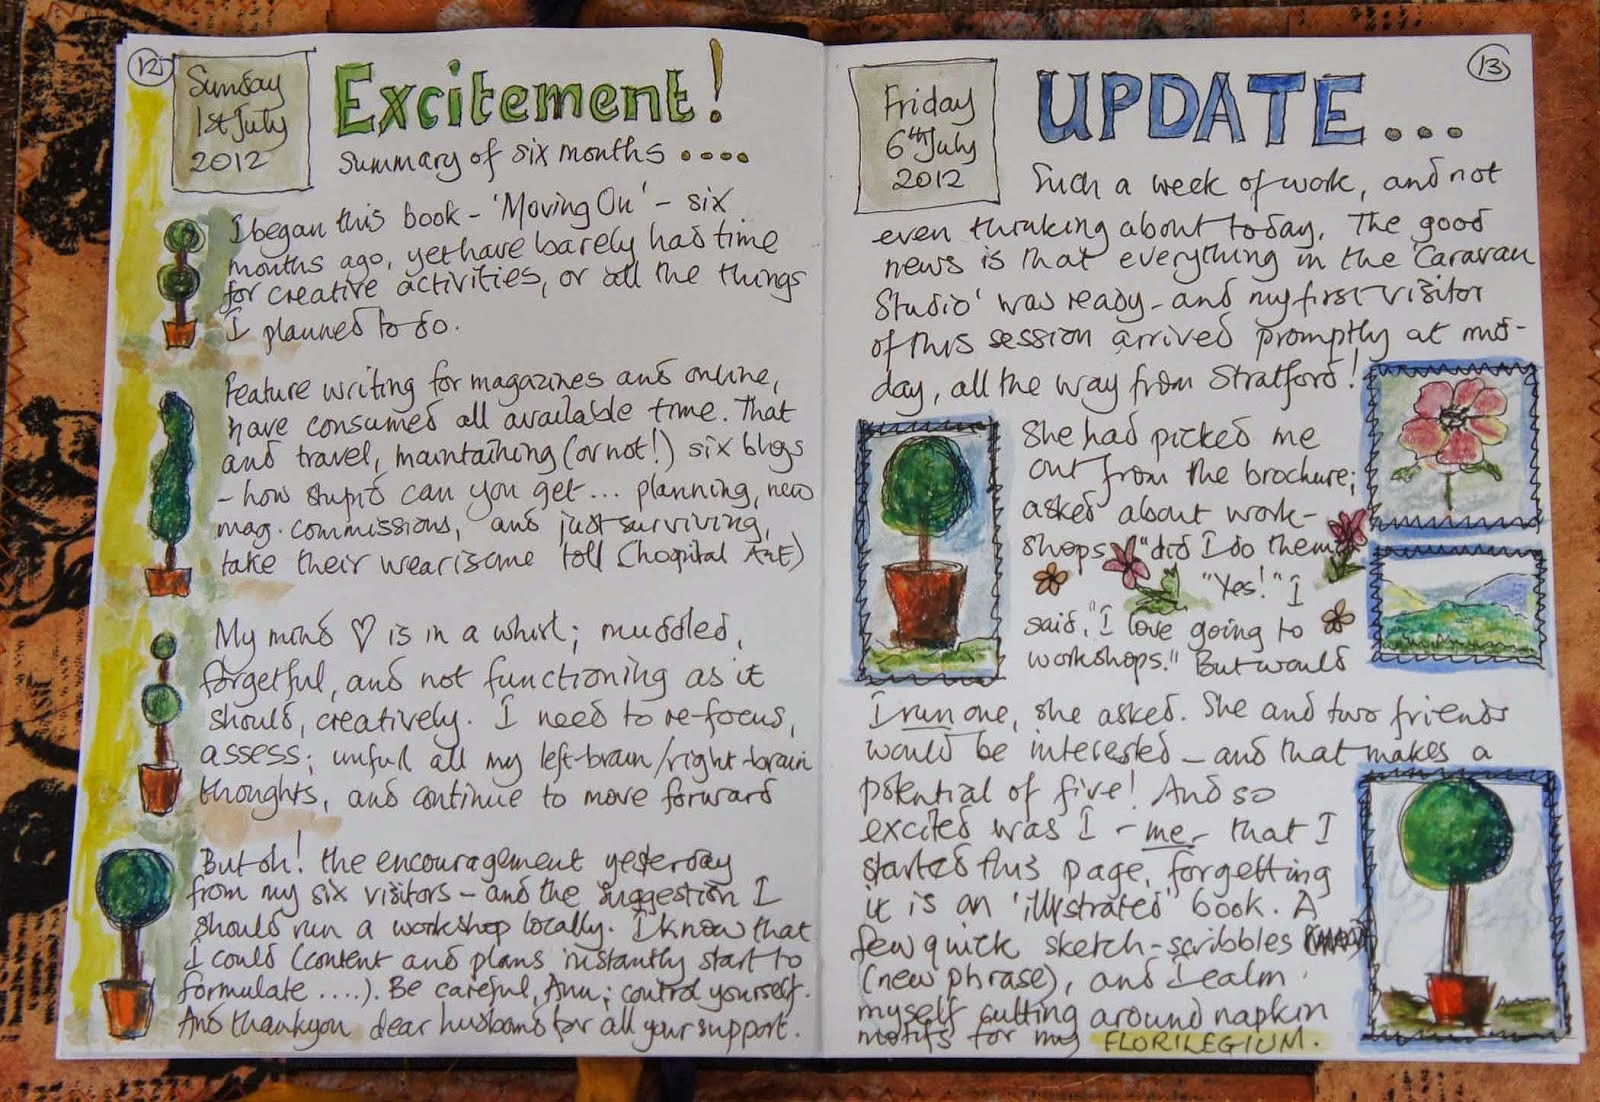 12
Sunday
1st July
2012
Excitement!
Summary of six months ....
I began this book - 'Moving On' - six
months ago, yet have barely had time
for creative activities, or all the things
I planned to do.
Feature writing for magazines and online,
have consumed all available time. That
and travel, maintaining (or not!) six blogs
- how stupid can you get ... planning, new
mag. commissions, and just surviving,
take their wearisome toll (hospital Art)
My mind ♡ is in a whirl; muddled,
forgetful, and not functioning as it
should, creatively. I need to re-focus,
assess; unfurl all my left-brain/right-brain
thoughts, and continue to move forward
But oh! the encouragement yesterday
from my six visitors - and the suggestion I
should run a workshop locally. I know that
I could (content and plans instantly start to
formulate ....). Be careful, Ann; control yourself.
And thankyou dear husband for all your support.
13
Friday
6th July
2012
UPDATE...
Such a week of work, and not
even thinking about today. The good
news is that everything in the 'Caravan
Studio' was ready - and my first visitor
of this session arrived promptly at mid-
day, all the way from Stratford!
She had picked me
out from the brochure;
asked about work-
shops, "did I do them
"Yes!" I
said, "I love going to
workshops." But would
I run one, she asked. She and two friends
would be interested - and that makes a
potential of five! And so
excited was I - me - that I
started this page, forgetting
it is an 'illustrated' book. A
few quick sketch-scribbles
(new phrase), and I calm
myself cutting around napkin
motifs for my FLORILEGIUM.